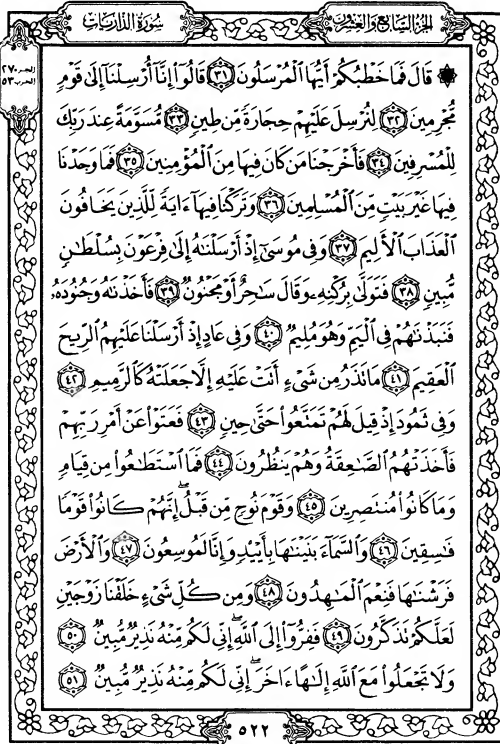 سُورَةُ الذَّارِيَاتِ
الجُزْءُ السَّابِعُ وَالعِشْرُونَ
الجزء ٢٧
الحزب ٥٣
۞ قَالَ فَمَا خَطْبُكُمْ أَيُّهَا ٱلْمُرْسَلُونَ ٣١ قَالُوٓا۟ إِنَّآ أُرْسِلْنَآ إِلَىٰ قَوْمٍ
مُّجْرِمِينَ ٣٢ لِنُرْسِلَ عَلَيْهِمْ حِجَارَةً مِّن طِينٍ ٣٣ مُّسَوَّمَةً عِندَ رَبِّكَ
لِلْمُسْرِفِينَ ٣٤ فَأَخْرَجْنَا مَن كَانَ فِيهَا مِنَ ٱلْمُؤْمِنِينَ ٣٥ فَمَا وَجَدْنَا
فِيهَا غَيْرَ بَيْتٍ مِّنَ ٱلْمُسْلِمِينَ ٣٦ وَتَرَكْنَا فِيهَآ ءَايَةً لِّلَّذِينَ يَخَافُونَ
ٱلْعَذَابَ ٱلْأَلِيمَ ٣٧ وَفِى مُوسَىٰٓ إِذْ أَرْسَلْنَٰهُ إِلَىٰ فِرْعَوْنَ بِسُلْطَٰنٍ
مُّبِينٍ ٣٨ فَتَوَلَّىٰ بِرُكْنِهِۦ وَقَالَ سَٰحِرٌ أَوْ مَجْنُونٌ ٣٩ فَأَخَذْنَٰهُ وَجُنُودَهُۥ
فَنَبَذْنَٰهُمْ فِى ٱلْيَمِّ وَهُوَ مُلِيمٌ ٤٠ وَفِى عَادٍ إِذْ أَرْسَلْنَا عَلَيْهِمُ ٱلرِّيحَ
ٱلْعَقِيمَ ٤١ مَا تَذَرُ مِن شَىْءٍ أَتَتْ عَلَيْهِ إِلَّا جَعَلَتْهُ كَٱلرَّمِيمِ ٤٢
وَفِى ثَمُودَ إِذْ قِيلَ لَهُمْ تَمَتَّعُوا۟ حَتَّىٰ حِينٍ ٤٣ فَعَتَوْا۟ عَنْ أَمْرِ رَبِّهِمْ
فَأَخَذَتْهُمُ ٱلصَّٰعِقَةُ وَهُمْ يَنظُرُونَ ٤٤ فَمَا ٱسْتَطَٰعُوا۟ مِن قِيَامٍ
وَمَا كَانُوا۟ مُنتَصِرِينَ ٤٥ وَقَوْمَ نُوحٍ مِّن قَبْلُ ۖ إِنَّهُمْ كَانُوا۟ قَوْمًا
فَٰسِقِينَ ٤٦ وَٱلسَّمَآءَ بَنَيْنَٰهَا بِأَيْي۟دٍ وَإِنَّا لَمُوسِعُونَ ٤٧ وَٱلْأَرْضَ
فَرَشْنَٰهَا فَنِعْمَ ٱلْمَٰهِدُونَ ٤٨ وَمِن كُلِّ شَىْءٍ خَلَقْنَا زَوْجَيْنِ
لَعَلَّكُمْ تَذَكَّرُونَ ٤٩ فَفِرُّوٓا۟ إِلَى ٱللَّهِ ۖ إِنِّى لَكُم مِّنْهُ نَذِيرٌ مُّبِينٌ ٥٠
وَلَا تَجْعَلُوا۟ مَعَ ٱللَّهِ إِلَٰهًا ءَاخَرَ ۖ إِنِّى لَكُم مِّنْهُ نَذِيرٌ مُّبِينٌ ٥١
٥٢٢